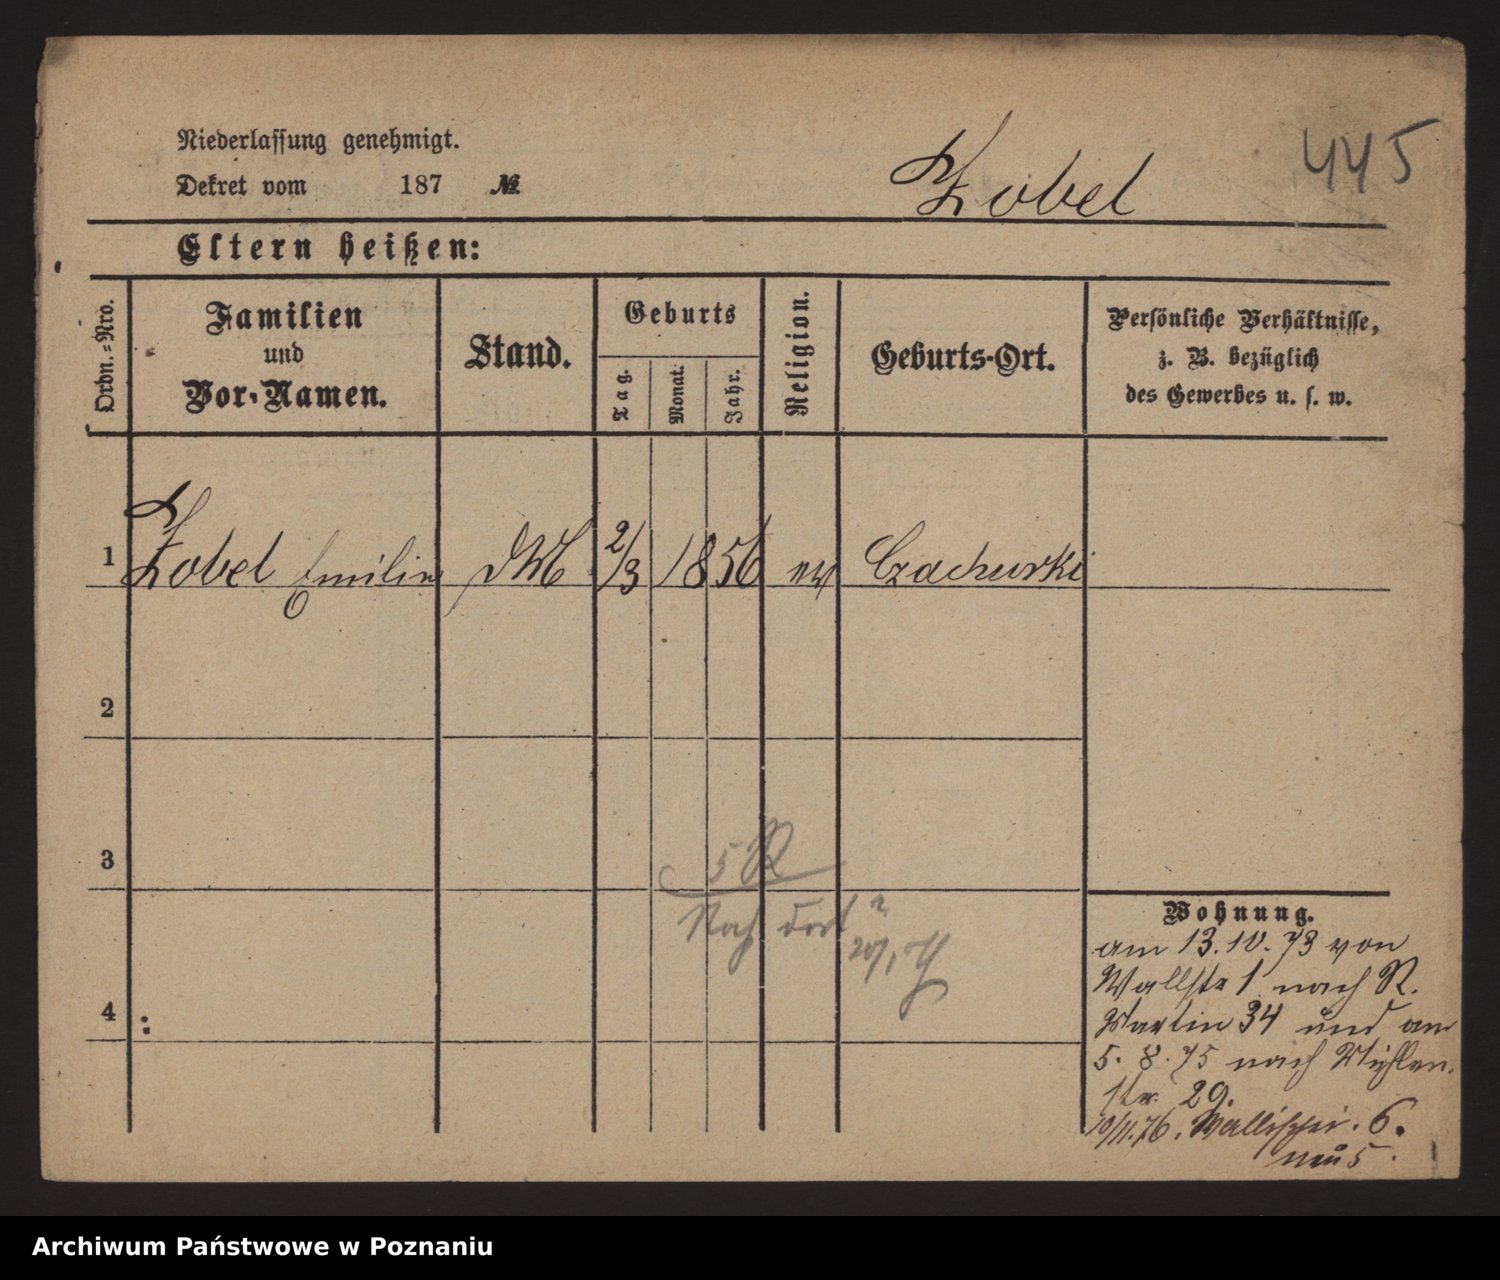 445
Niederlassung genehmigt.
Dekret vom 187 №
Zobel
Eltern heißen:
Ordn.-Nro.
Familien
und
Vor-Namen.
Stand.
Geburts
Tag.
Monat.
Jahr.
Religion.
Geburts-Ort.
Persönliche Verhältnisse,
z. B. bezüglich
des Gewerbes u. s. w.
1 Zobel Emilie DM 2/3 1856 ev Czachurki
2
3
5 R
Nach dort
4
Wohnung.
am 13.10.73 von
Wallstr 1 nach St.
Martin 34 und am
5. 8. 75 nach Mühlen-
str. 29.
10/11.76. Wallischei. 6.
neu 5.
Archiwum Państwowe w Poznaniu